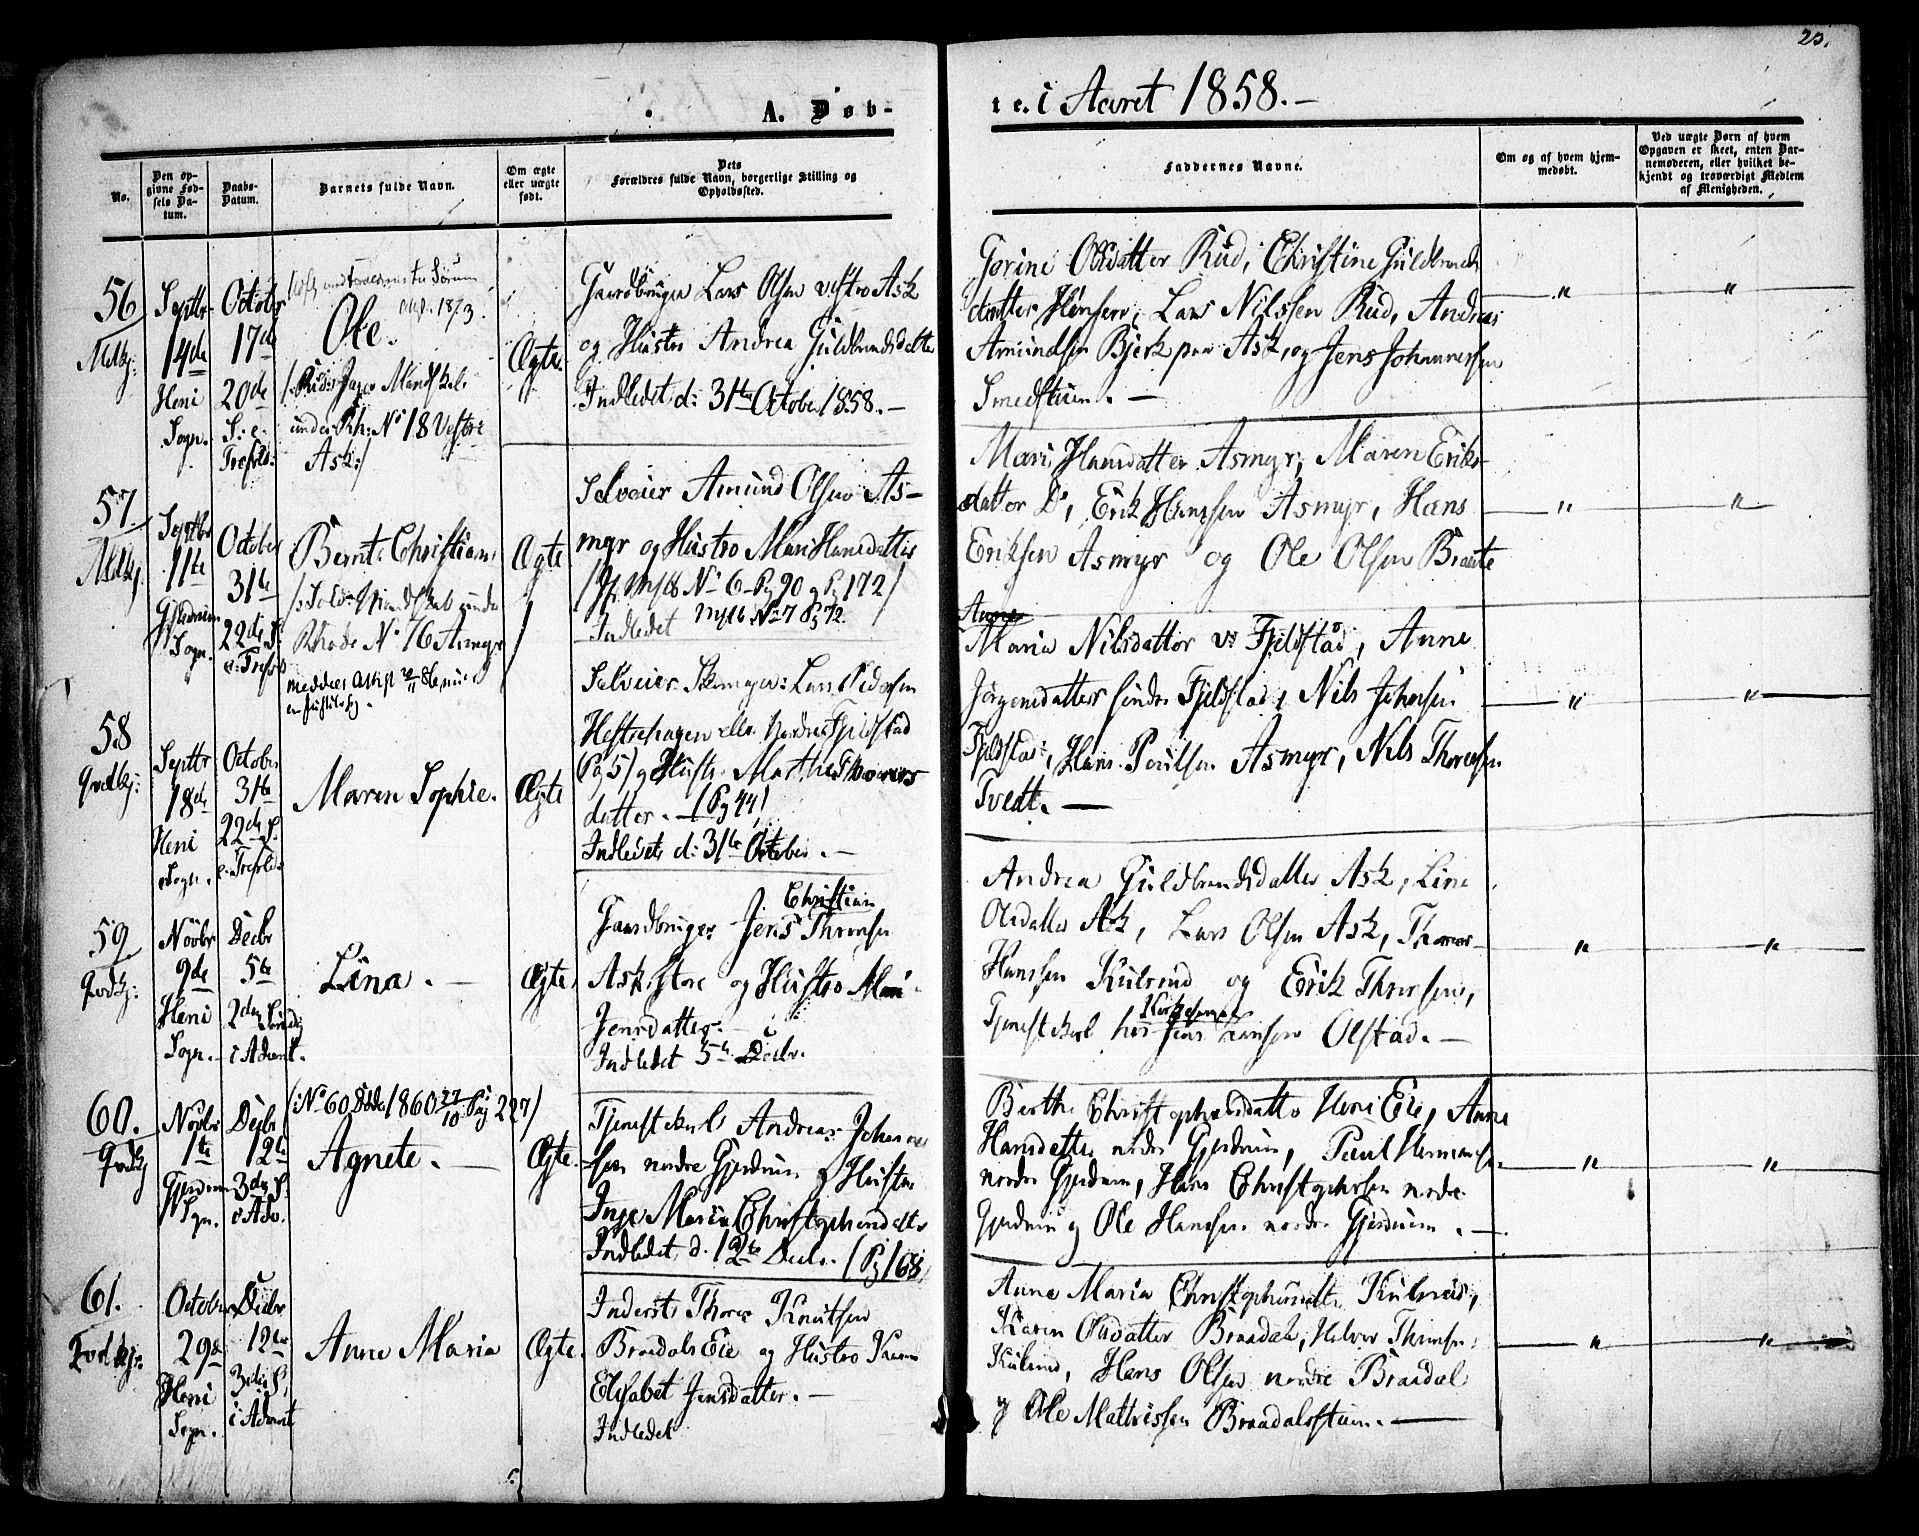 23.
A. Døb-
te. i Aaret 1858.-
No.
Den op-
givne Fød-
sels Da-
tum.
Daabs-
Datum.
Barnets fulde Navn.
Om ægte
eller uægte
født.
Dets
Forældres fulde Navn, borgerlige Stilling og
Opholdssted.
Faddernes Navne.
Om og af hvem hjem-
medøbt.
Ved uægte Børn af hvem
Opgaven er skeet, enten Bar-
nemoderen, eller hvilket be-
kjendt og troværdigt Medlem
af Menigheden.
56
Septbr
14de
Heni
Sogn.
October
17de
20de
S. e.
Trefold:
1873.
Ole.
under Rh: No 18 Vestre
Ask:/
Ægte
Gaardbruger Lars Olsen vestre Ask
og Hustro Andrea Guldbrandsdatter
Indledet d: 31te October 1858.-
Gorine Olsdatter Rud, Christine Guldbrands
datter Hønsen, Lars Nilssen Rud, Andreas
Amundsen Bjerk paa Ask, og Jens Johannessen
Smedstuen.-
57
Septbr
11te
Gjerdrum
Sogn.
October
31te
22de S.
e. Trefold
Bernt Christian
Rhode No 76 Asmyr
Ægte
Selveier Amund Olsen As-
myr og Hustro Mari Hansdatter
No 6 Pg 90 og Pg 172/
No 7 Pg 72.
Indledet
Mari Hansdatter Asmyr, Maren Eriks
datter Do, Erik Hanssen Asmyr, Hans
Eriksen Asmyr og Ole Olsen Braate
58
Septbr
18de
Heni
Sogn.
October
31te
22de S.
e. Trefold:
Maren Sophie.
Ægte
Selveier Lars Pedersen
Hestehagen eller Nordre Fjeldstad
Pg 5/ og Hustro Marthe Thores
datter.- /Pg 44/
Indledet d: 31te October.-
Maria Nilsdatter Fjeldstad, Anne
Jørgensdatter søndre Fjeldstad, Nils Johnsen
Fjeldstad, Hans Poulsen Asmyr, Nils Thoresen
Tvedt.-
59
Novbr
9de
Heni
Sogn.
Decbr
5te
2den Søndag
i Advent.
Lina.-
Ægte
Christian
Gaardbruger Jens Thoresen
Ask store og Hustro Mari
Jensdatter.-
Indledet 5te Decbr.
Andrea Guldbrandsdatter Ask, Line
Olsdatter Ask, Lars Olsen Ask, Thomas
Hanssen Kulsrud og Erik Thoresen,
Kirkesanger
Tjenestekarl hos Jens Larsen Olstad.-
60.
Novbr
1te
Gjerdrum
Sogn.
Decbr
12te
3die S.
i Adv.
(No 60 Døde 1860 27/10 Pag 227)
Agnete.-
Ægte
Tjenestekarl Andreas Johannes
sen nordre Gjerdrum og Hustro
Inge Maria Christophersdatter
Indledet d. 12te Decbr. (Pg 168)
Berthe Christophersdatter Heni Eie, Anne
Hansdatter nordre Gjerdrum, Paul Hermansen
nordre Gjerdrum, Hans Christophersen nordre
Gjerdrum og Ole Hanssen nordre Gjerdrum.-
61.
October
29de
Heni
Sogn.
Decbr
12te
3die S.
i Advent
Anne Maria
Ægte
Inderst Thore Knutsen
Braadals Eie og Hustro Karen
Elisabet Jensdatter.-
Indledet
Anne Maria Christophersdatter Kulsrud,
Karen Olsdatter Braadal, Halvor Thoresen
Kulsrud, Hans Olsen nordre Braadal
og Ole Mathissen Braadalsstuen.-